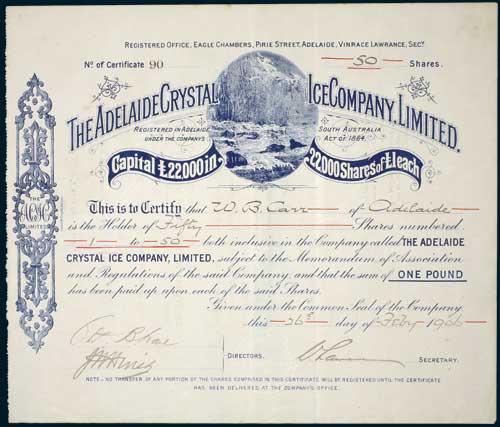 REGISTERED OFFICE, EAGLE CHAMBERS, PIRIE STREET, ADELAIDE, VINRACE LAWRANCE, SECY.
No of Certificate 90
50 Shares.
THE ADELAIDE CRYSTAL ICE COMPANY, LIMITED.
REGISTERED IN ADELAIDE SOUTH AUSTRALIA
UNDER THE COMPANYS ACT OF 1864.
Capital £22000 in 22,000 Shares of £1 each
THE
LIMITED
This is to Certify that W. B. Carr of Adelaide
is the Holder of Fifty Shares numbered
1 to 50 both inclusive in the Company called THE ADELAIDE
CRYSTAL ICE COMPANY, LIMITED, subject to the Memorandum of Association
and Regulations of the said Company, and that the sum of ONE POUND
has been paid up upon each of the said Shares.
Given under the Common Seal of the Company
this 26th day of Feby 1906
DIRECTORS.
SECRETARY.
NOTE - NO TRANSFER OF ANY PORTION OF THE SHARES COMPRISED IN THIS CERTIFICATE WILL BE REGISTERED UNTIL THE CERTIFICATE
HAS BEEN DELIVERED AT THE COMPANY'S OFFICE.